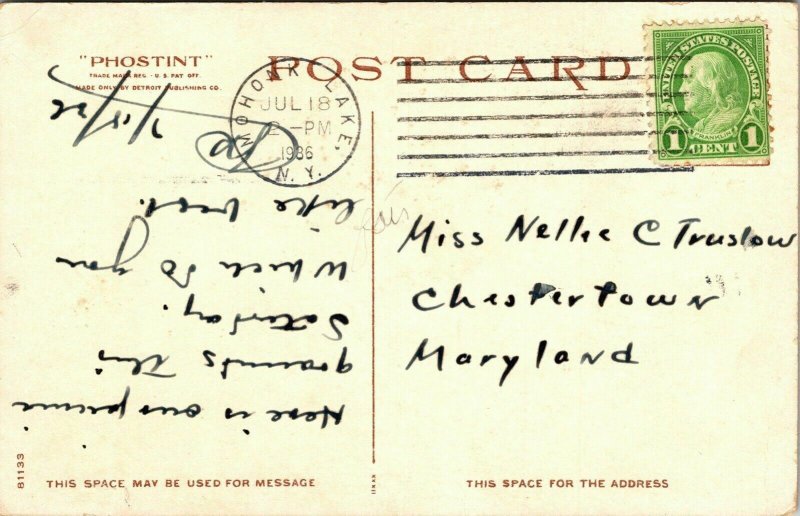 "PHOSTINT"
TRADE MARK REG. - U.S. PAT OFF.
MADE ONLY BY DETROIT PUBLISHING CO.
POST CARD
MOHONK LAKE,
JUL 18
2 - PM
1936
N. Y.
UNITED STATES POSTAGE
FRANKLIN
1 CENT 1
Here is our picnic
grounds this
Saturday.
Which do you
like best.
7/18/36
Miss Nellie C Truslow
Chestertown
Maryland
81133
THIS SPACE MAY BE USED FOR MESSAGE
THIS SPACE FOR THE ADDRESS